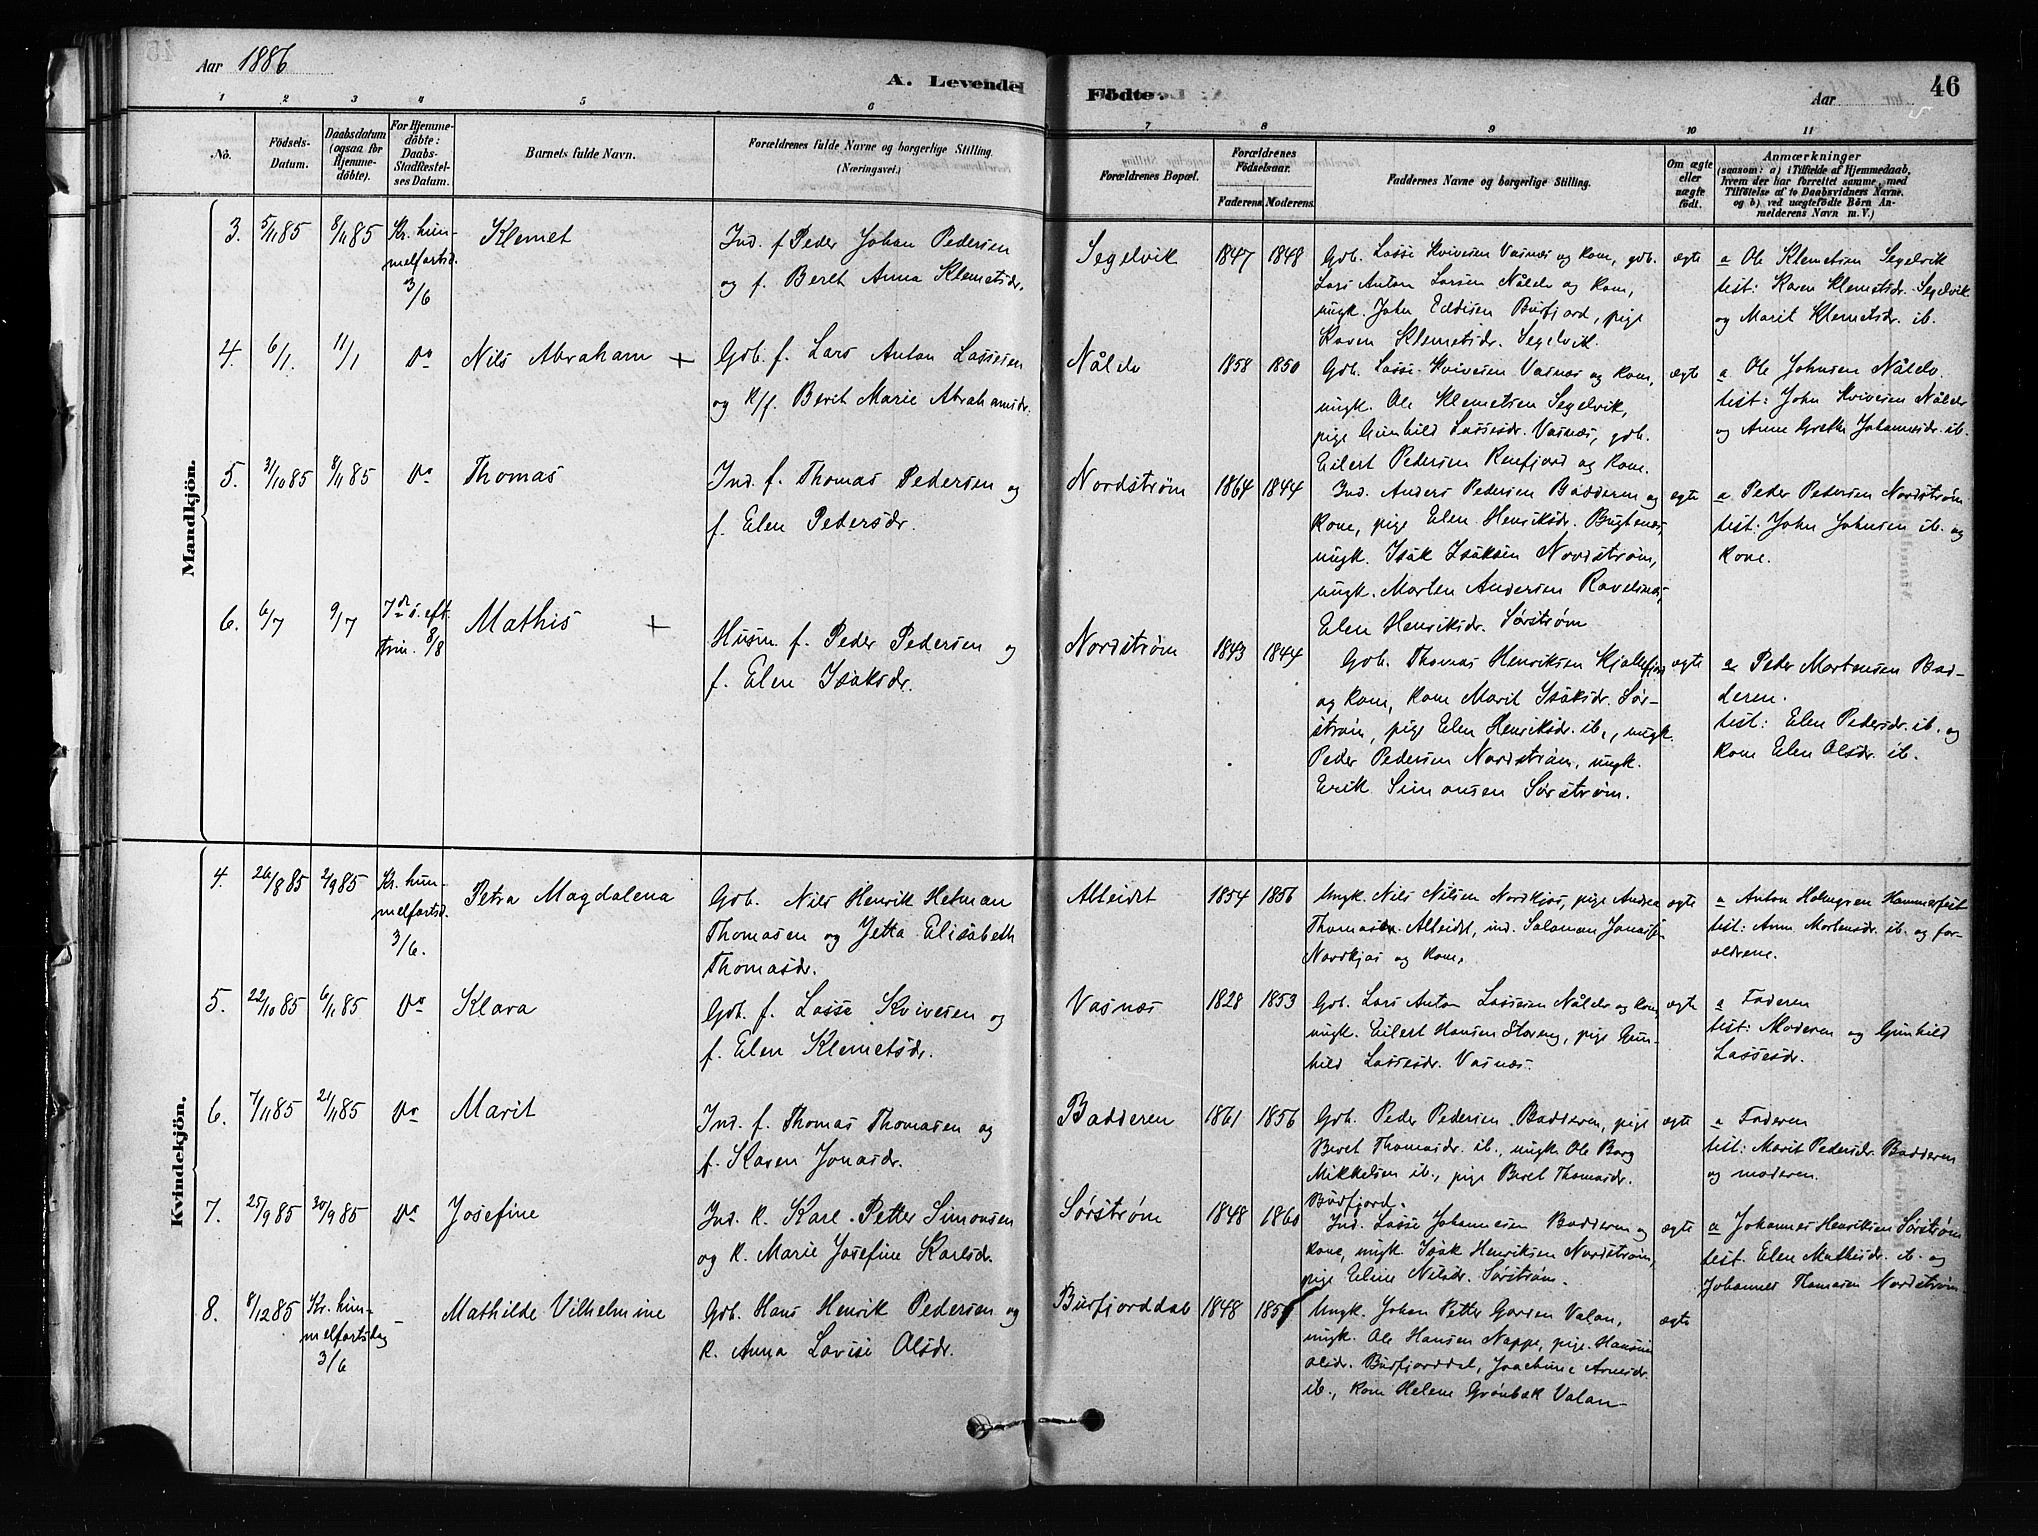 Aar 1886
A. Levende Födte.
Aar
46
1 2 3 4 5 6 7 8 9 10 11
No.
Födsels-Datum.
Daabsdatum (ogsaa for Hjemme-döbte).
For Hjemme-döbte: Daabs-Stadfæstel-ses Datum.
Barnets fulde Navn.
Forældrenes fulde Navne og borgerlige Stilling.
(Næringsvei.)
Forældrenes Bopæl.
Forældrenes Födselsaar.
Faderens. Moderens.
Faddernes Navne og borgerlige Stilling.
Om ægte eller uægte født.
Anmærkninger
(saasom: a) i Tilfælde af Hjemmedaab, hvem der har forrettet samme, med Tilföielse af to Daabsvidners Navne, og b) ved uægtefödte Börn Anmelderens Navn m. V.)
Mandkjön.
3. 5/11 85 8/11 85 Kr. him-melfartsd. 3/6 Klemet
Ind. f Peder Johan Pedersen
og f. Beret Anna Klemetsdr.
Segelvik 1847 1848
Gdb. Lasse Kvivesen Vasnæs og kone, gdb.
Lars Anton Larsen Nålde og kone,
ungk. John Eddisen Burfjord, pige
Karen Klemetsdr. Segelvik.
ægte
a Ole Klemetsen Segelvik
test: Karen Klemetsdr. Segelvik
og Marit Klemetsdr. ib.
4. 6/1. 11/1 Do Nils Abraham +
Gdb. f. Lars Anton Lassesen
og K/f. Berit Marie Abrahamsdr.
Nålde 1858 1850
Gdb. Lasse Kvivesen Vasnæs og kone,
ungk. Ole Klemetsen Segelvik,
pige Gunhild Lassesdr. Vasnæs, gdb.
Eilert Pedersen Kenfjord og kone.
ægte
a. Ole Johnsen Nålde.
test: John Kvivesen Nålde
og Anne Grethe Johannesdr. ib.
5. 31/10 85 8/11 85 Do Thomas
Ind. f. Thomas Pedersen og
f. Elen Pedersdr.
Nordstrøm 1864 1844
Ind. Anders Pedersen Badderen og
kone, pige Elen Henriksdr. Bugtenæs,
ungk. Isak Isaksen Nordstrøm,
ungk. Morten Andersen Ravelsnæs,
Elen Henriksdr. Sørstrøm
ægte
a. Peder Pedersen Nordstrøm
test: John Johnsen ib. og
kone.
6. 6/7 9/7 7de s. eft. trin. 8/8 Mathis +
Husm. f. Peder Pedersen og
f. Elen Isaksdr.
Nordstrøm 1843 1844
Gdb. Thomas Henriksen Kjøllefjord
og kone, kone Marit Isaksdr. Sør-
strøm, pige Elen Henriksdr. ib., ungk.
Peder Pedersen Nordstrøm, ungk.
Erik Simonsen Sørstrøm.
ægte
a. Peder Mortensen Bad-
deren.
test: Elen Pedersdr. ib. og
kone Elen Olsdr. ib.
Kvindekjön.
4. 26/8 85 2/9 85 Kr. him-melfartsd. 3/6. Petra Magdalena
Gdb. Nils Henrik Hetman
Thomasen og Jetta Elisabeth
Thomasdr.
Alteidet 1854 1856
Ungk. Nils Nilsen Nordkjos, pige Andrea
Thomasdr. Alteidet, ind. Salomon Jonassen
Nordkjos og kone.
ægte
a Anton Holmgren Hammerfest
test: Anne Mortensdr. ib. og for-
ældrene.
5. 22/10 85 6/11 85 Do Klara
Gdb. f. Lasse Kvivesen og
f. Elen Klemetsdr.
Vasnæs 1828 1853
Gdb. Lars Anton Lassesen Nålde og kone,
ungk. Eilert Hansen Storeng, pige Gun-
hild Lassesdr. Vasnæs.
ægte
a Faderen
test: Moderen og Gunhild
Lassesdr.
6. 7/11 85 21/11 85 Do Marit
Ind. f. Thomas Thomasen og
f. Karen Jonasdr.
Badderen 1861 1856
Gdb. Peder Pedersen Badderen, pige
Beret Thomasdr. ib., ungk. Ole Borg
Mikkelsen ib., pige Beret Thomasdr.
Burfjord.
ægte
a Faderen
test: Marit Pedersdr. Badderen
og moderen.
7. 25/9 85 30/9 85 Do Josefine
Ind. K. Karl Petter Simonsen
og K. Marie Josefine Karlsdr.
Sørstrøm 1848 1860
Ind. Lasse Johannesen Badderen og
kone, ungk. Isak Henriksen Nordstrøm,
pige Eline Nilsdr. Sørstrøm.
ægte
a Johannes Henriksen Sørstrøm
test. Elen Mathisdr. ib. og
Johannes Thomasen Nordstrøm.
8. 8/12 85 Kr. him-melfartsdag 3/6 - Mathilde Vilhelmine
Gdb. Hans Henrik Pedersen og
K. Anna Lovise Olsdr.
Burfjorddal 1848
Ungk. Johan Petter Garden Valan,
ungk. Ole Hansen Nappe, pige Hansine
Olsdr. Burfjorddal, Joachime Arnesdr.
ib., kone Helene Grønbæk Valan
ægte